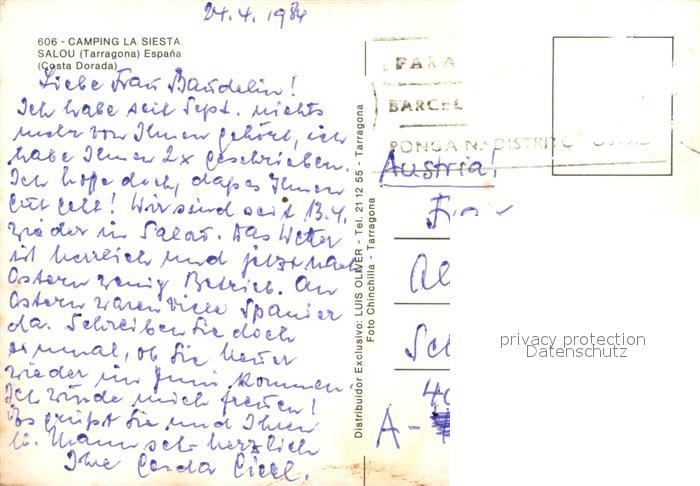 24.4. 1984
606 - CAMPING LA SIESTA.
SALOU (Tarragona) España
(Costa Dorada)
Liebe Frau Baudelin!
Ich habe seit Sept. nichts
mehr von Ihnen gehört, ich
habe Ihnen 2x geschrieben.
Ich hoffe doch, daß es Ihnen
gut geht! Wir sind seit 13.4.
wieder in Salou. Das Wetter
ist herrlich und jetzt nach
Ostern wenig Betrieb. An
Ostern waren viele Spanier
da. Schreiben Sie doch
einmal, ob Sie heuer
wieder im Juni kommen.
Ich würde mich freuen!
Es grüßt Sie und Ihren
lb. Mann sehr herzlich
Ihre Gerda
Distribuidor Exclusivo: LUIS OLIVER - Tel. 21 12 55 - Tarragona
Foto Chinchilla - Tarragona
PARA
BARCEL
PONGA N.º DISTRITO POSTAL
Austria!
A -
privacy protection
Datenschutz